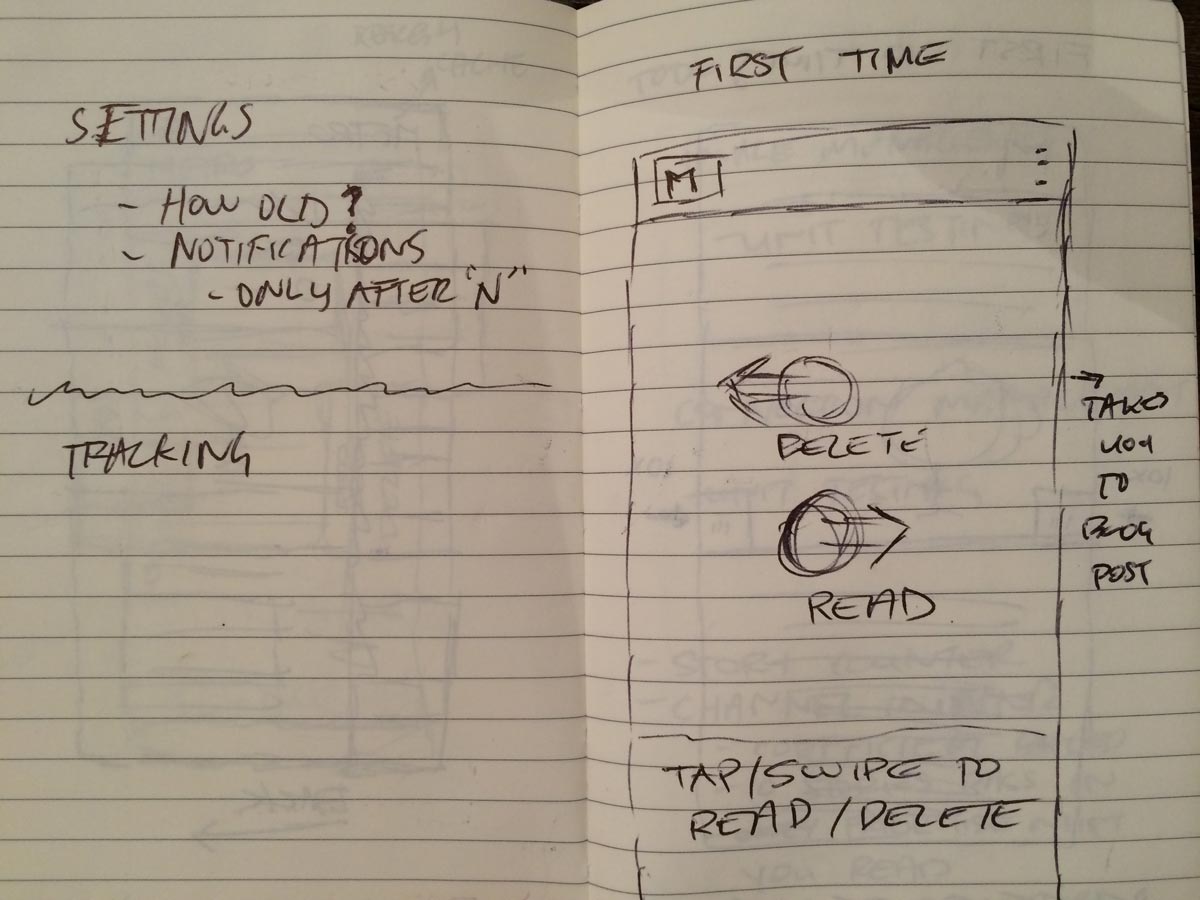 SETTINGS
- HOW OLD?
- NOTIFICATIONS
- ONLY AFTER "N"
TRACKING
FIRST TIME
M
DELETE
READ
TAP/SWIPE TO
READ/DELETE
→ TAKES
YOU
TO
BLOG
POST